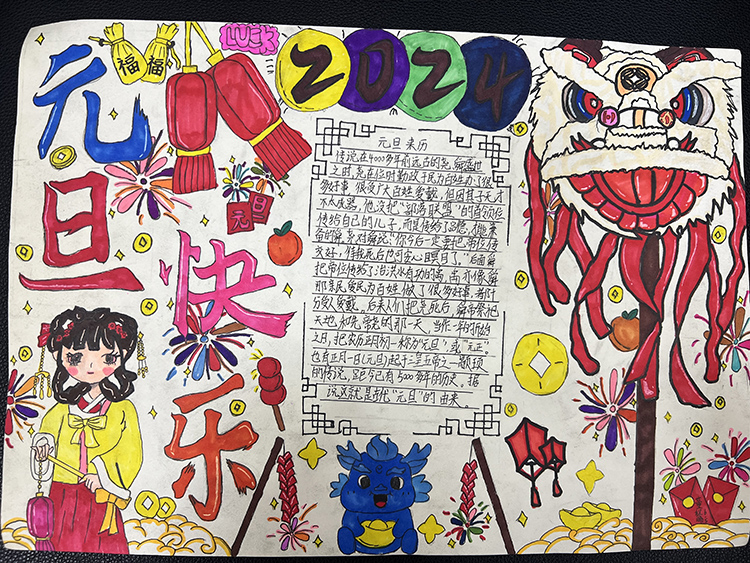 元旦快乐
福
福
LUCK
2024
元旦
元旦来历
传说在4000多年前远古的尧舜盛世
之时,尧在位时勤政于民为百姓办了很
多好事,很受广大百姓爱戴,但因其子无才
不太成器,他没把"部落联盟"的首领位
传给自己的儿子,而是传给了
你今后一定要把帝位传
交好,待我死后也可安心瞑目了。"后来舜
把帝位传给了治洪水有功的禹,禹亦像舜
那亲民爱民为百姓做了很多好事,都十
分受人爱戴。后来人们把尧死后,舜帝祭祀
天地和先帝尧的那一天,当作一年的开始
之月,把农历正月初一称为"元旦"或"元正"
也有正月一日(元旦)起于三皇五帝之一颛顼
的情况,距今已有5000多年的历史。据
说这就是古代"元旦"的由来。